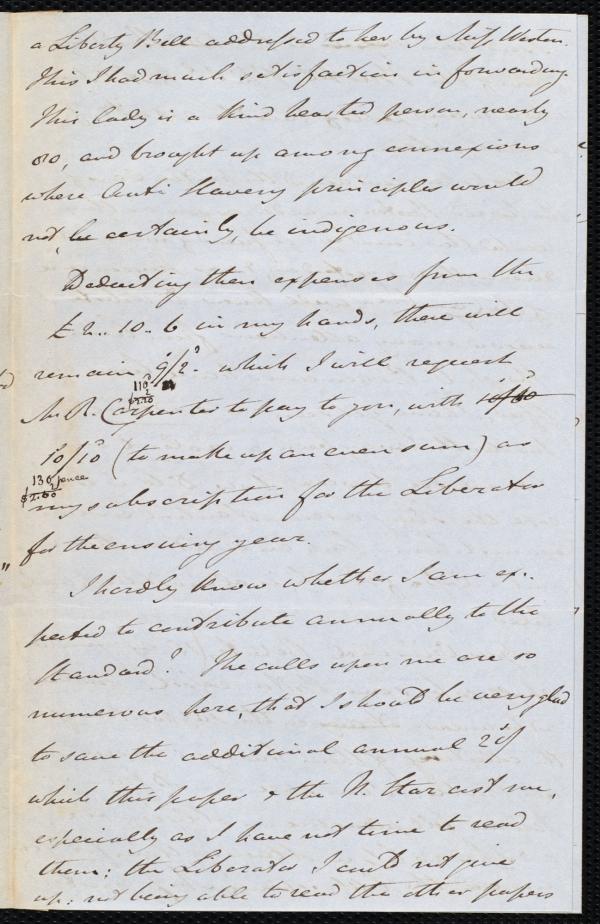 a Liberty Bell addressed to her by Miss Weston.
This I had much satisfaction in forwarding.
This lady is a kind hearted person, nearly
80, and brought up among connexions
where Anti Slavery principles would
not, be certainly, be indigenous.
Deducting then expenses from the
£2..10..6 in my hands, there will
remain 9/2. which I will request
110
2
$2.20
M. R. Carpenter to pay to you, with 10/10
10/10 (to make up an even sum) as
130 pence
2
$2.60
my subscription for the Liberator
for the ensuing year.
I hardly know whether I am ex-
pected to contribute annually to the
Standard? The calls upon me are so
numerous here, that I should be very glad
to save the additional annual
which this paper & the N. Star cost me,
especially as I have not time to read
them: the Liberator I could not give
up: not being able to read the other papers